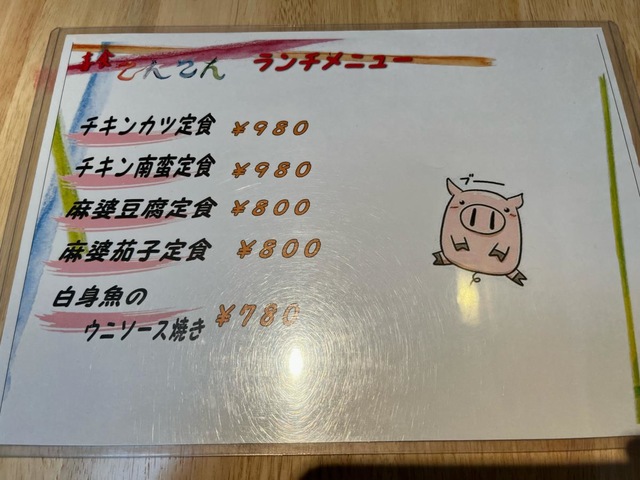 とんとん ランチメニュー
チキンカツ定食 ¥980
チキン南蛮定食 ¥980
麻婆豆腐定食 ¥800
麻婆茄子定食 ¥800
白身魚の
ウニソース焼き ¥780
ブー